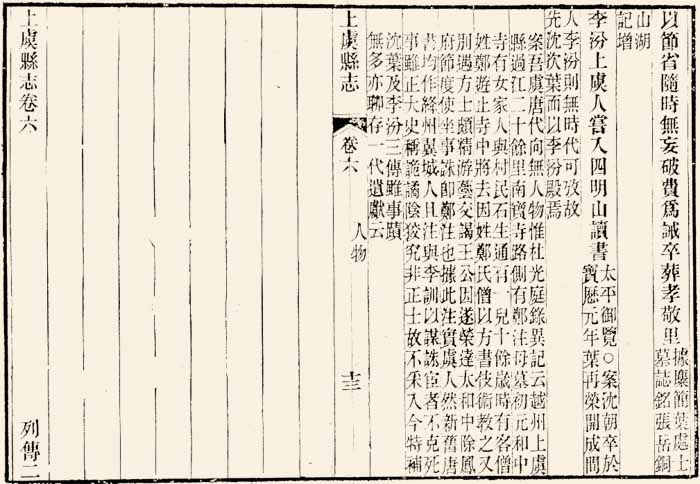 以節省隨時無妄破費爲誡卒葬孝敬里
據龐簡葉處士
墓誌銘張岳銅
山湖
記增
李汾上虞人嘗入四明山讀書
太平御覽○案沈朝卒於
寶厯元年葉再榮開成間
人李汾則無時代可攷故
先沈次葉而以李汾殿焉
案吾虞唐代向無人物惟杜光庭錄異記云越州上虞
縣過江二十餘里南寶寺路側有鄭注母墓初元和中
寺有女家人與村民石生通有一兒十餘歲時有客僧
姓鄭遊止寺中將去因姓鄭氏僧以方書伎術教之又
別遇方士頗精游藝交謁王公因遂榮達太和中除鳳
府節度使坐事誅卽鄭注也據此注實虞人然新舊唐
書均作絳州翼城人且注與李訓以謀誅宦者不克死
事雖正大史稱詭譎陰狡究非正士故不采入今特補
沈葉及李汾三傳雖事蹟
無多亦聊存一代遺獻云
上虞縣志
卷六
人物
十三
上虞縣志卷六
列傳二